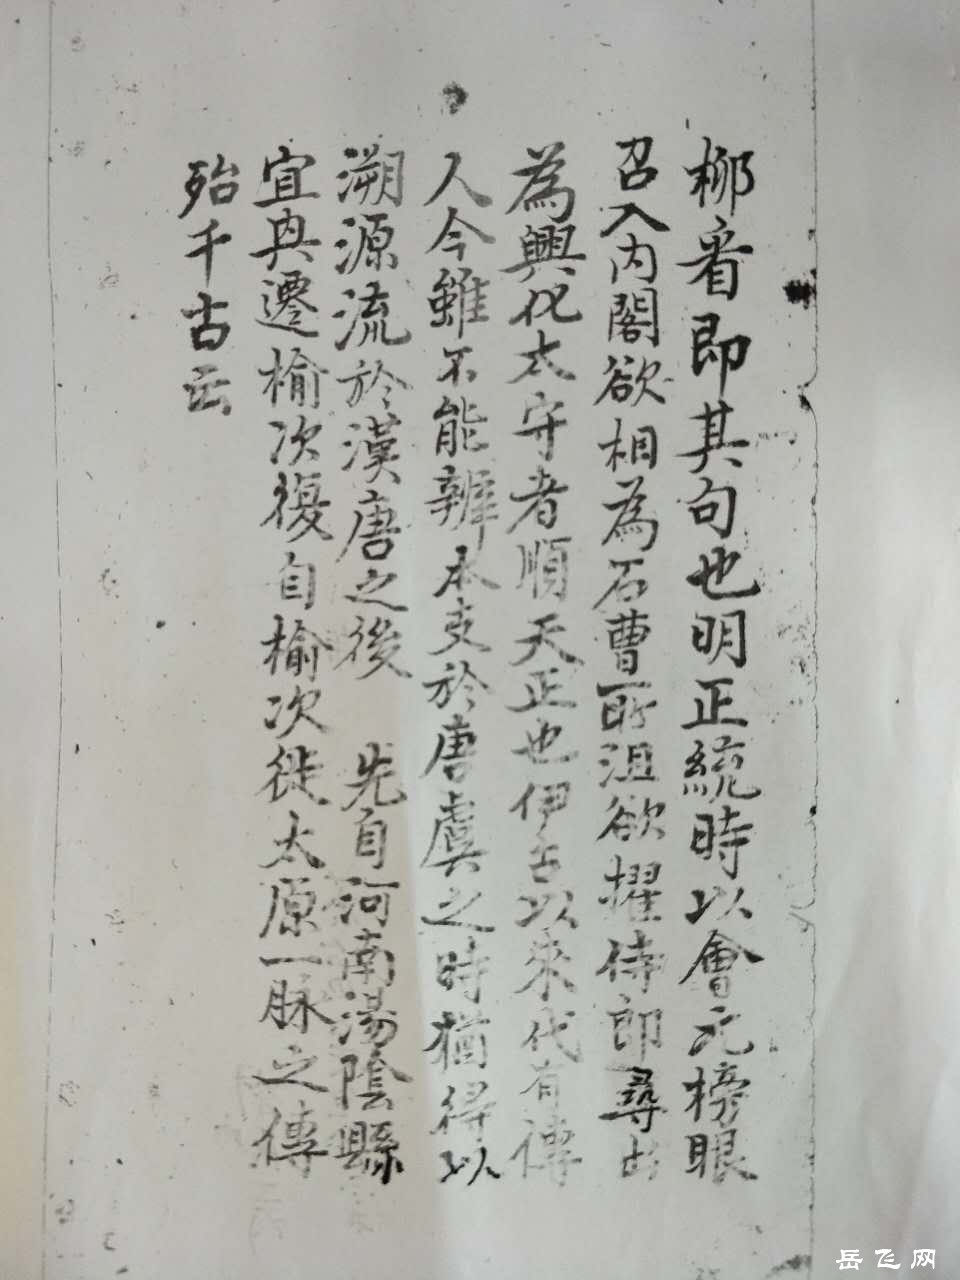 柳看即其句也明正統時以會元榜眼
召入內閣欲相為石曹所沮欲擢侍郎尋出
為興化太守者順天正也伊古以來代有傳
人今雖不能辨本支於唐虞之時猶得以
溯源流於漢唐之後 先自河南湯陰縣
宜遷榆次復自榆次徙太原一脉之傳
殆千古云
岳飞网